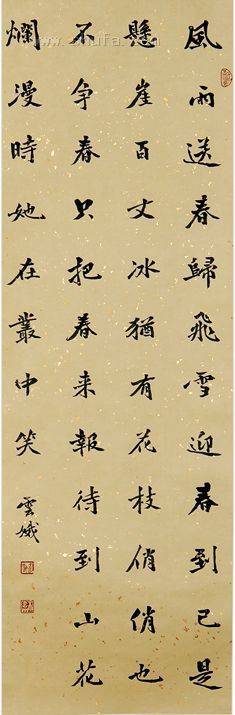 風雨送春歸飛雪迎春到已是
懸崖百丈冰猶有花枝俏俏也
不争春只把春来報待到山花
爛漫時她在叢中笑
雲娥